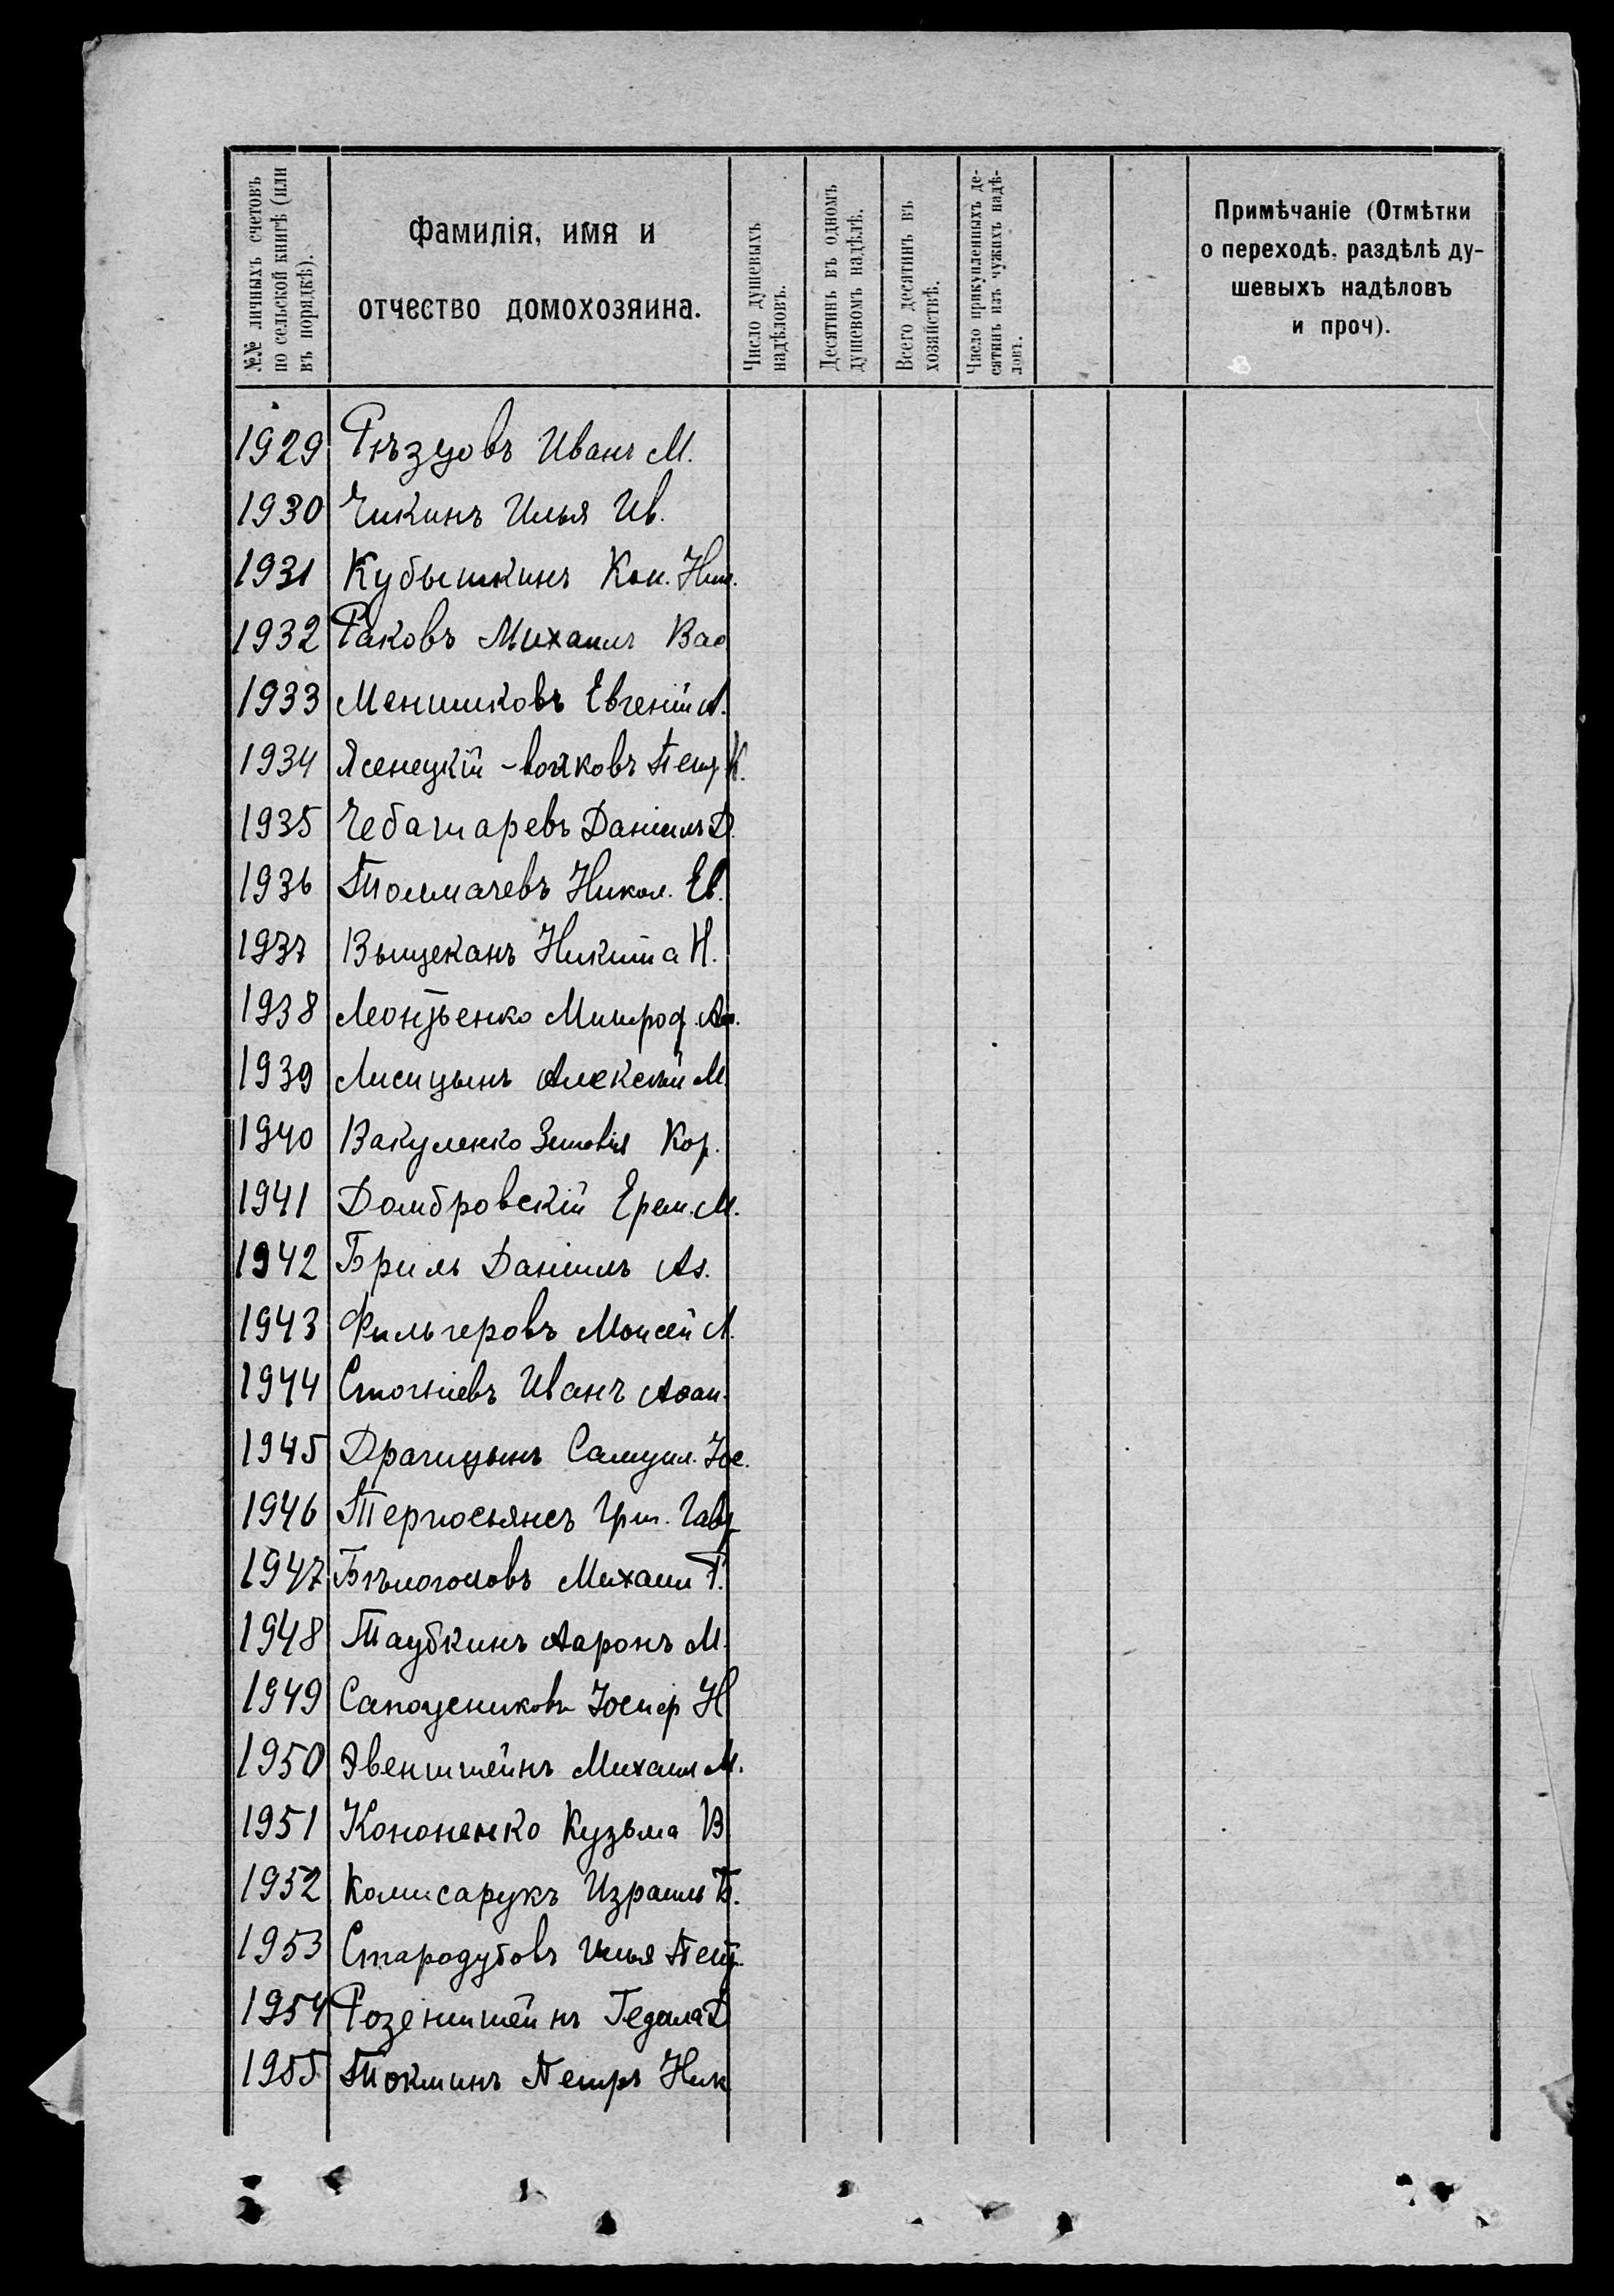 №№ личныхъ счетовъ
по сельской книгѣ (или
въ порядкѣ).
Фамилія, имя и
отчество домохозяина.
Число душевыхъ
надѣловъ.
Десятинъ въ одномъ
душевомъ надѣлѣ.
Всего десятинъ въ
хозяйствѣ.
Число прикупленныхъ де-
сятинъ изъ чужихъ надѣ-
ловъ.
Примѣчаніе (Отмѣтки
о переходѣ, раздѣлѣ ду-
шевыхъ надѣловъ
и проч).
1929 Рѣзцовъ Иванъ М.
1930 Чикинъ Илья Ив.
1931 Кубышкинъ Кон.
1932 Раковъ Михаилъ Вас
1933 Меншиковъ Евгеній А.
1934 Ясенецкій-Войковъ Петр К.
1935 Чеботаревъ Даніилъ Д.
1936 Толмачевъ Никол. Ев.
1937 Выщеканъ Никита Н.
1938 Леонтьенко Митроф.
1939 Лисицынъ Алексѣй М.
1940 Вакуленко Зиновія Кор.
1941 Домбровскій Ерем. М.
1942 Бриль Даніилъ Аз.
1943 Фильгеровъ Моисей Л.
1944 Стогніевъ Иванъ Афан.
1945 Драгицынъ Самуил. Іос.
1946 Тергосьянсъ Григ. Гавр
1947 Бѣлоголовъ Михаил Г.
1948 Таубкинъ Ааронъ М.
1949 Іосиф Н
1950 Эвенштейнъ Михаил М.
1951 Кононенко Кузьма В
1952 Комисарукъ Израиль Б.
1953 Стародубовъ Илья Петр.
1954 Розенштейнъ Гедала Д
1955 Токминъ Петръ Ник